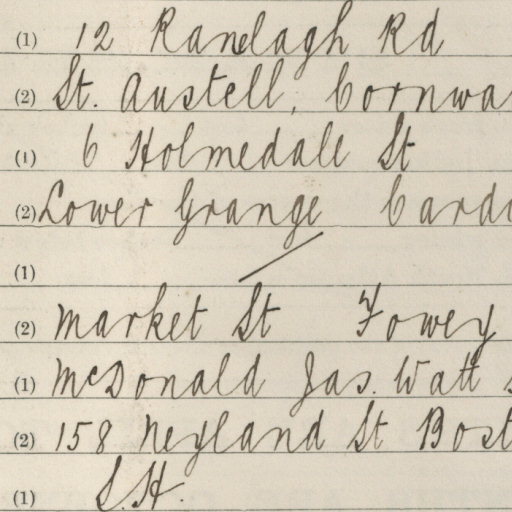 (1) 12 Ranelagh Rd
(2) St. Austell, Cornwa
(1) 6 Holmedale St
(2) Lower Grange Card
(1) /
(2) Market St Fowey
(1) McDonald Jas. Watt s
(2) 158 Neyland St Bost
(1) S.H.